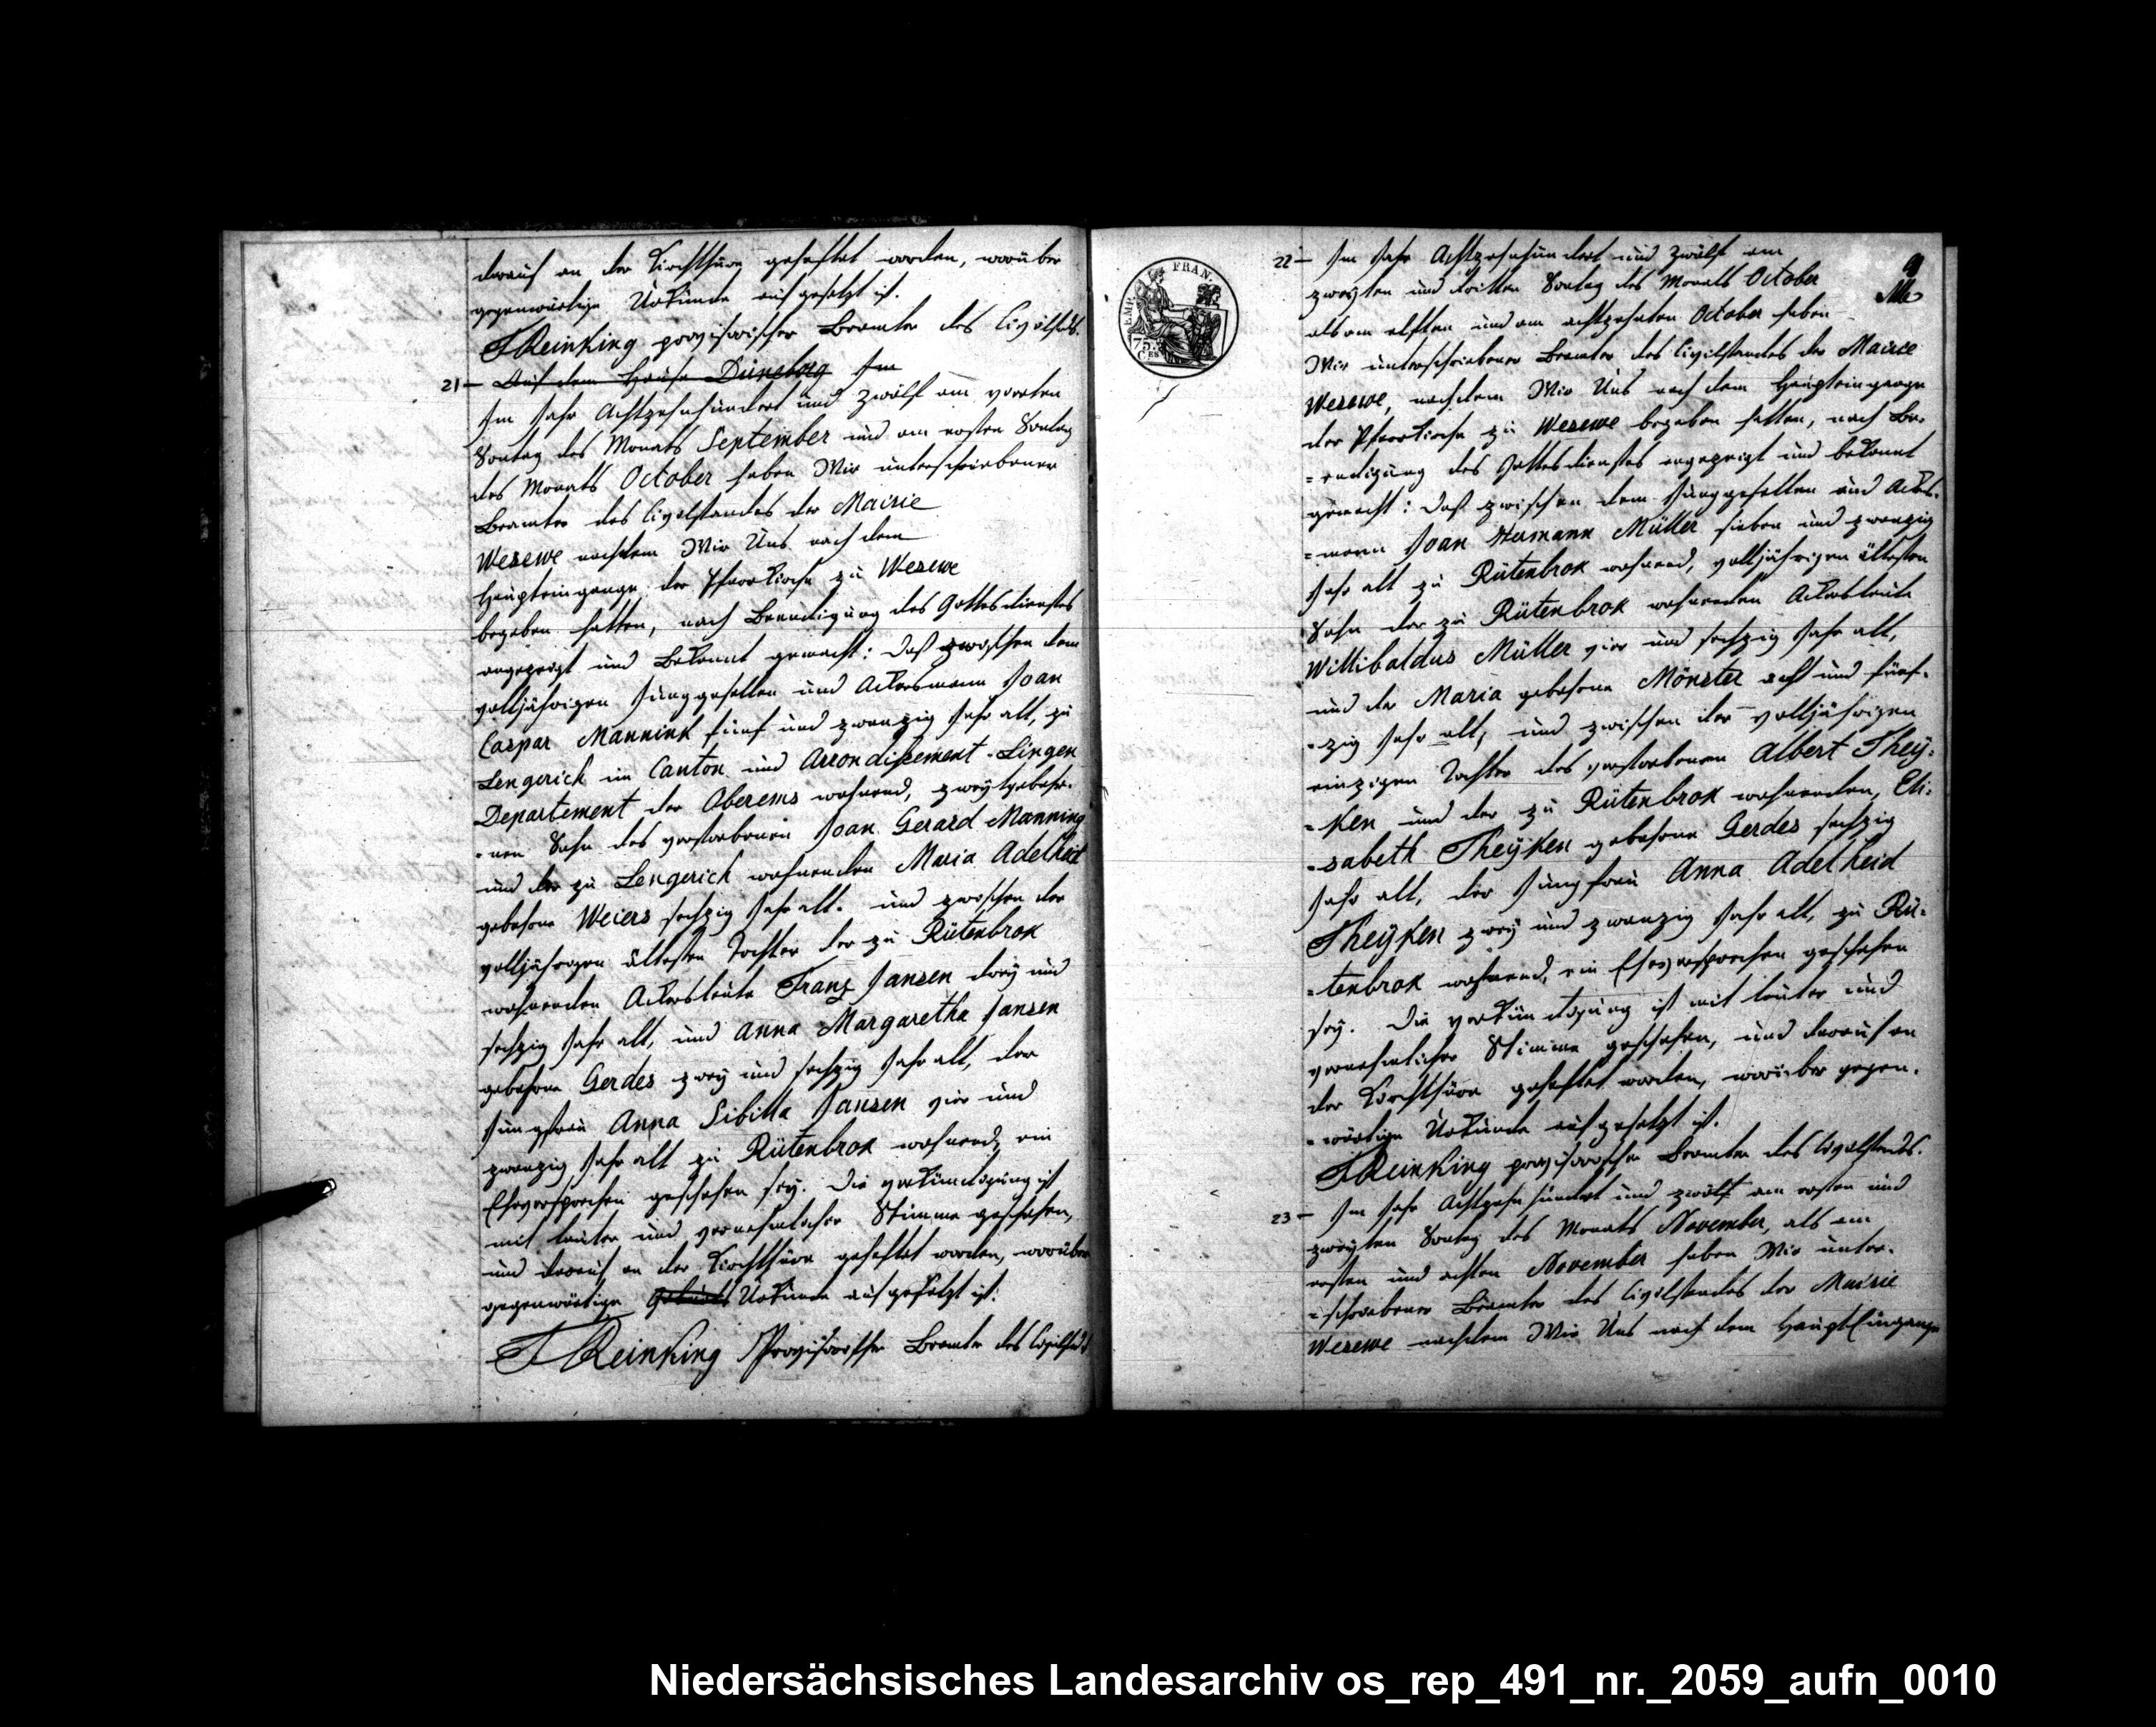 darauf an der Kirchthüre geheftet worden, worüber
gegenwärtige Urkunde aufgesetzt ist.
Reinking provisorischer Beamter des Civilstds.
21 – Auf dem Hause Düneburg Im
Im Jahr Achtzehnhundert und zwölf am vierten
Sontag des Monats September und am ersten Sontag
des Monats October haben Wir unterschriebener
Beamter des Civilstandes der Mairie
Wesewe nachdem Wir Uns nach dem
Haupteingange der Pfarrkirche zu Wesewe
begeben hatten, nach Beendigung des Gottesdienstes
angezeigt und Bekannt gemacht: Daß zwischen dem
volljährigen Junggesellen und Ackersmann Joan
Caspar Mannink fünf und zwanzig Jahr alt, zu
Lengerich im Canton und Arrondißement Lingen
Departement der Oberems wohnend, zweytgebohr-
-nen Sohn des verstorbenen Joan Gerard Manning
und der zu Lengerich wohnenden Maria Adelheid
gebohrne Weiers sechzig Jahr alt. und zwischen der
volljährigen ältesten Tochter der zu Rütenbrok
wohnenden Ackersleute Franz Jansen drey und
sechzig Jahr alt, und Anna Margaretha Jansen
gebohrne Gerdes zwey und sechzig Jahr alt, der
Jungfrau Anna Sibilla Jansen vier und
zwanzig Jahr alt zu Rütenbrok wohnend, ein
Eheversprechen geschehen sey. Die Verkündigung ist
mit lauter und vernehmlicher Stimme geschehen,
und darauf an der Kirchthüre geheftet worden, worüber
gegenwärtige Urkunde aufgesetzt ist.
Reinking Provisorischer Beamter des Civilstds
EMP. FRAN.
75 CES
9
22 – Im Jahr Achtzehnhundert und zwölf am
zweyten und dritten Sontag des Monats October
als am elften und am achtzehnten October haben
Wir unterschriebener Beamter des Civilstandes der Mairie
Wesewe, nachdem Wir Uns nach dem Haupteingange
der Pfarrkirche zu Wesewe begeben hatten, nach Be-
=endigung des Gottesdienstes angezeigt und bekannt
gemacht: Daß zwischen dem Junggesellen und Ackers-
=mann Joan Hermann Müller sieben und zwanzig
Jahr alt zu Rütenbrok wohnend, volljährigen ältesten
Sohn der zu Rütenbrok wohnenden Ackersleute
Willibaldus Müller vier und sechzig Jahr alt,
und der Maria gebohrne Mönster acht und fünf-
-zig Jahr alt, und zwischen der volljährigen
einzigen Tochter des verstorbenen Albert Theÿ-
-ken und der zu Rütenbrok wohnenden, Eli-
-sabeth Theÿken gebohrne Gerdes sechzig
Jahr alt, der Jungfrau Anna Adelheid
Theÿken zwey und zwanzig Jahr alt, zu Rü-
-tenbrok wohnend, ein Eheversprechen geschehen
sey. Die Verkündigung ist mit lauter und
vernehmlicher Stimme geschehen, und darauf an
der Kirchthüre geheftet worden, worüber gegen-
-wärtige Urkunde aufgesetzt ist.
Reinking provisorischer Beamter des Civilstands.
23 – Im Jahr Achtzehnhundert und zwölf am ersten und
zweyten Sontag des Monats November, als am
ersten und achten November haben Wir unter-
=schriebener Beamter des Civilstandes der Mairie
Wesewe nachdem Wir Uns nach dem HauptEingange
Niedersächsisches Landesarchiv os_rep_491_nr._2059_aufn_0010